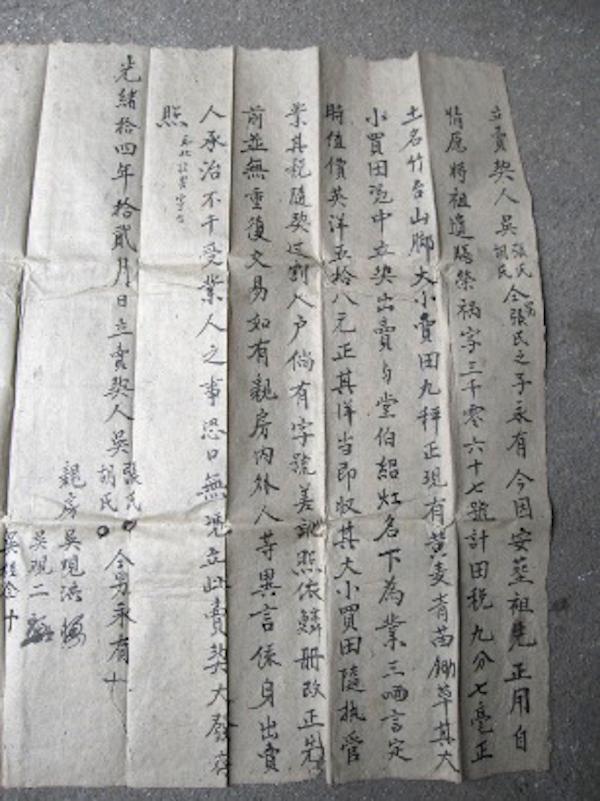 立賣契人吳張氏胡氏仝男張氏之子永有今因安塟祖先正用自
情愿將祖遺鬮榮禍字三千零六十七號計田税九分七毫正
土名竹吾山脚大小賣田九秤正現有黃麦青苗鋤草其大
小買田憑中立契出賣与堂伯紹灴名下為業三面言定
時值價英洋五拾八元正其洋当即收其大小買田隨执管
業其税隨契过割入户倘有字號差訛照依鱗册改正先
前並無重復交易如有親房內外人等異言係身出賣
人承治不干受業人之事恐口無憑立此賣契大發存
照
光緒拾四年拾貳月日立賣契人吳張氏〇胡氏〇仝男永有十
親房吳觀洪
吳觀二